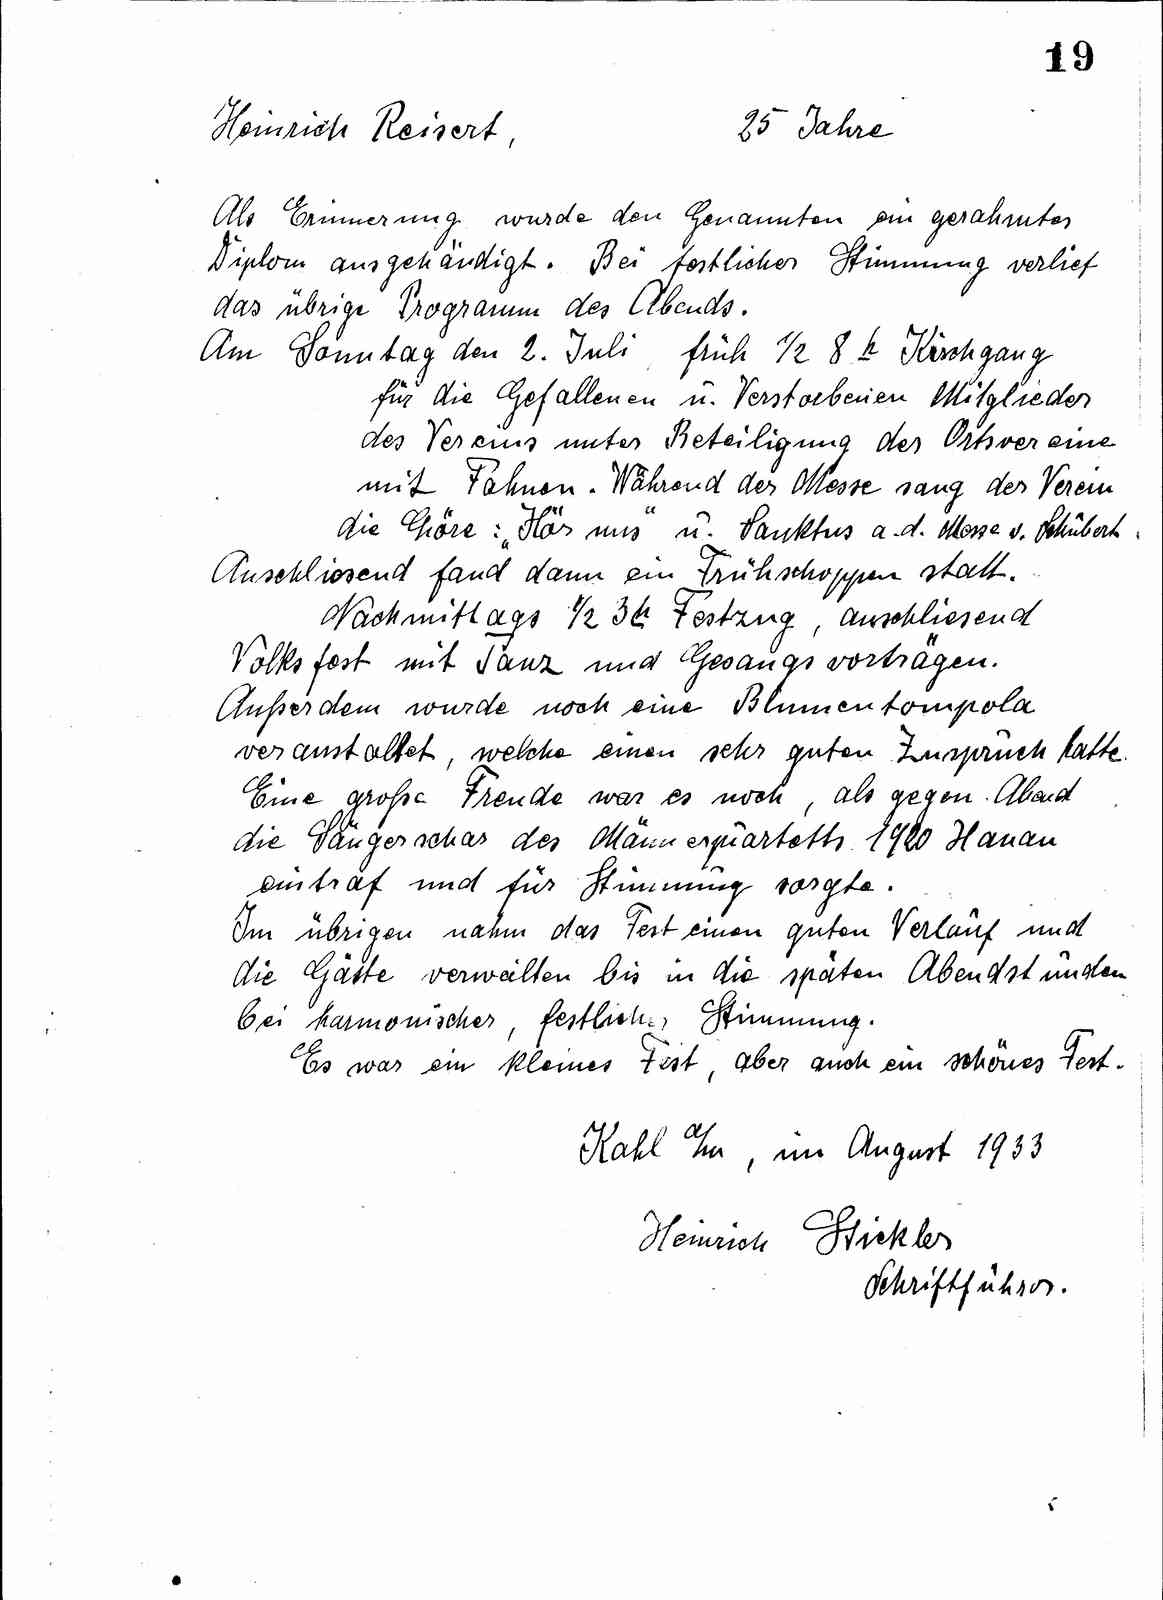 19
Heinrich Reisert, 25 Jahre
Als Erinnerung wurde den Genannten ein gerahmtes
Diplom ausgehändigt. Bei festlicher Stimmung verlief
das übrige Programm des Abends.
Am Sonntag den 2. Juli früh 1/2 8 h Kirchgang
für die Gefallenen u. Verstorbenen Mitglieder
des Vereins unter Beteiligung der Ortsvereine
mit Fahnen. Während der Messe sang der Verein
die Chöre: „Hör uns" u. Sanktus a.d. Messe v. Schubert.
Anschliesend fand dann ein Frühschoppen statt.
Nachmittags 1/2 3 h Festzug, anschliesend
Volksfest mit Tanz und Gesangsvorträgen.
Außerdem wurde noch eine Blumentompola
veranstaltet, welche einen sehr guten Zuspruch hatte.
Eine große Freude war es noch, als gegen Abend
die Sängerschar des Männerquartetts 1920 Hanau
eintraf und für Stimmung sorgte.
Im übrigen nahm das Fest einen guten Verlauf und
die Gäste verweilten bis in die späten Abendstunden
bei harmonischer, festlicher Stimmung.
Es war ein kleines Fest, aber auch ein schönes Fest.
Kahl a/m, im August 1933
Heinrich Stickler
Schriftführer.